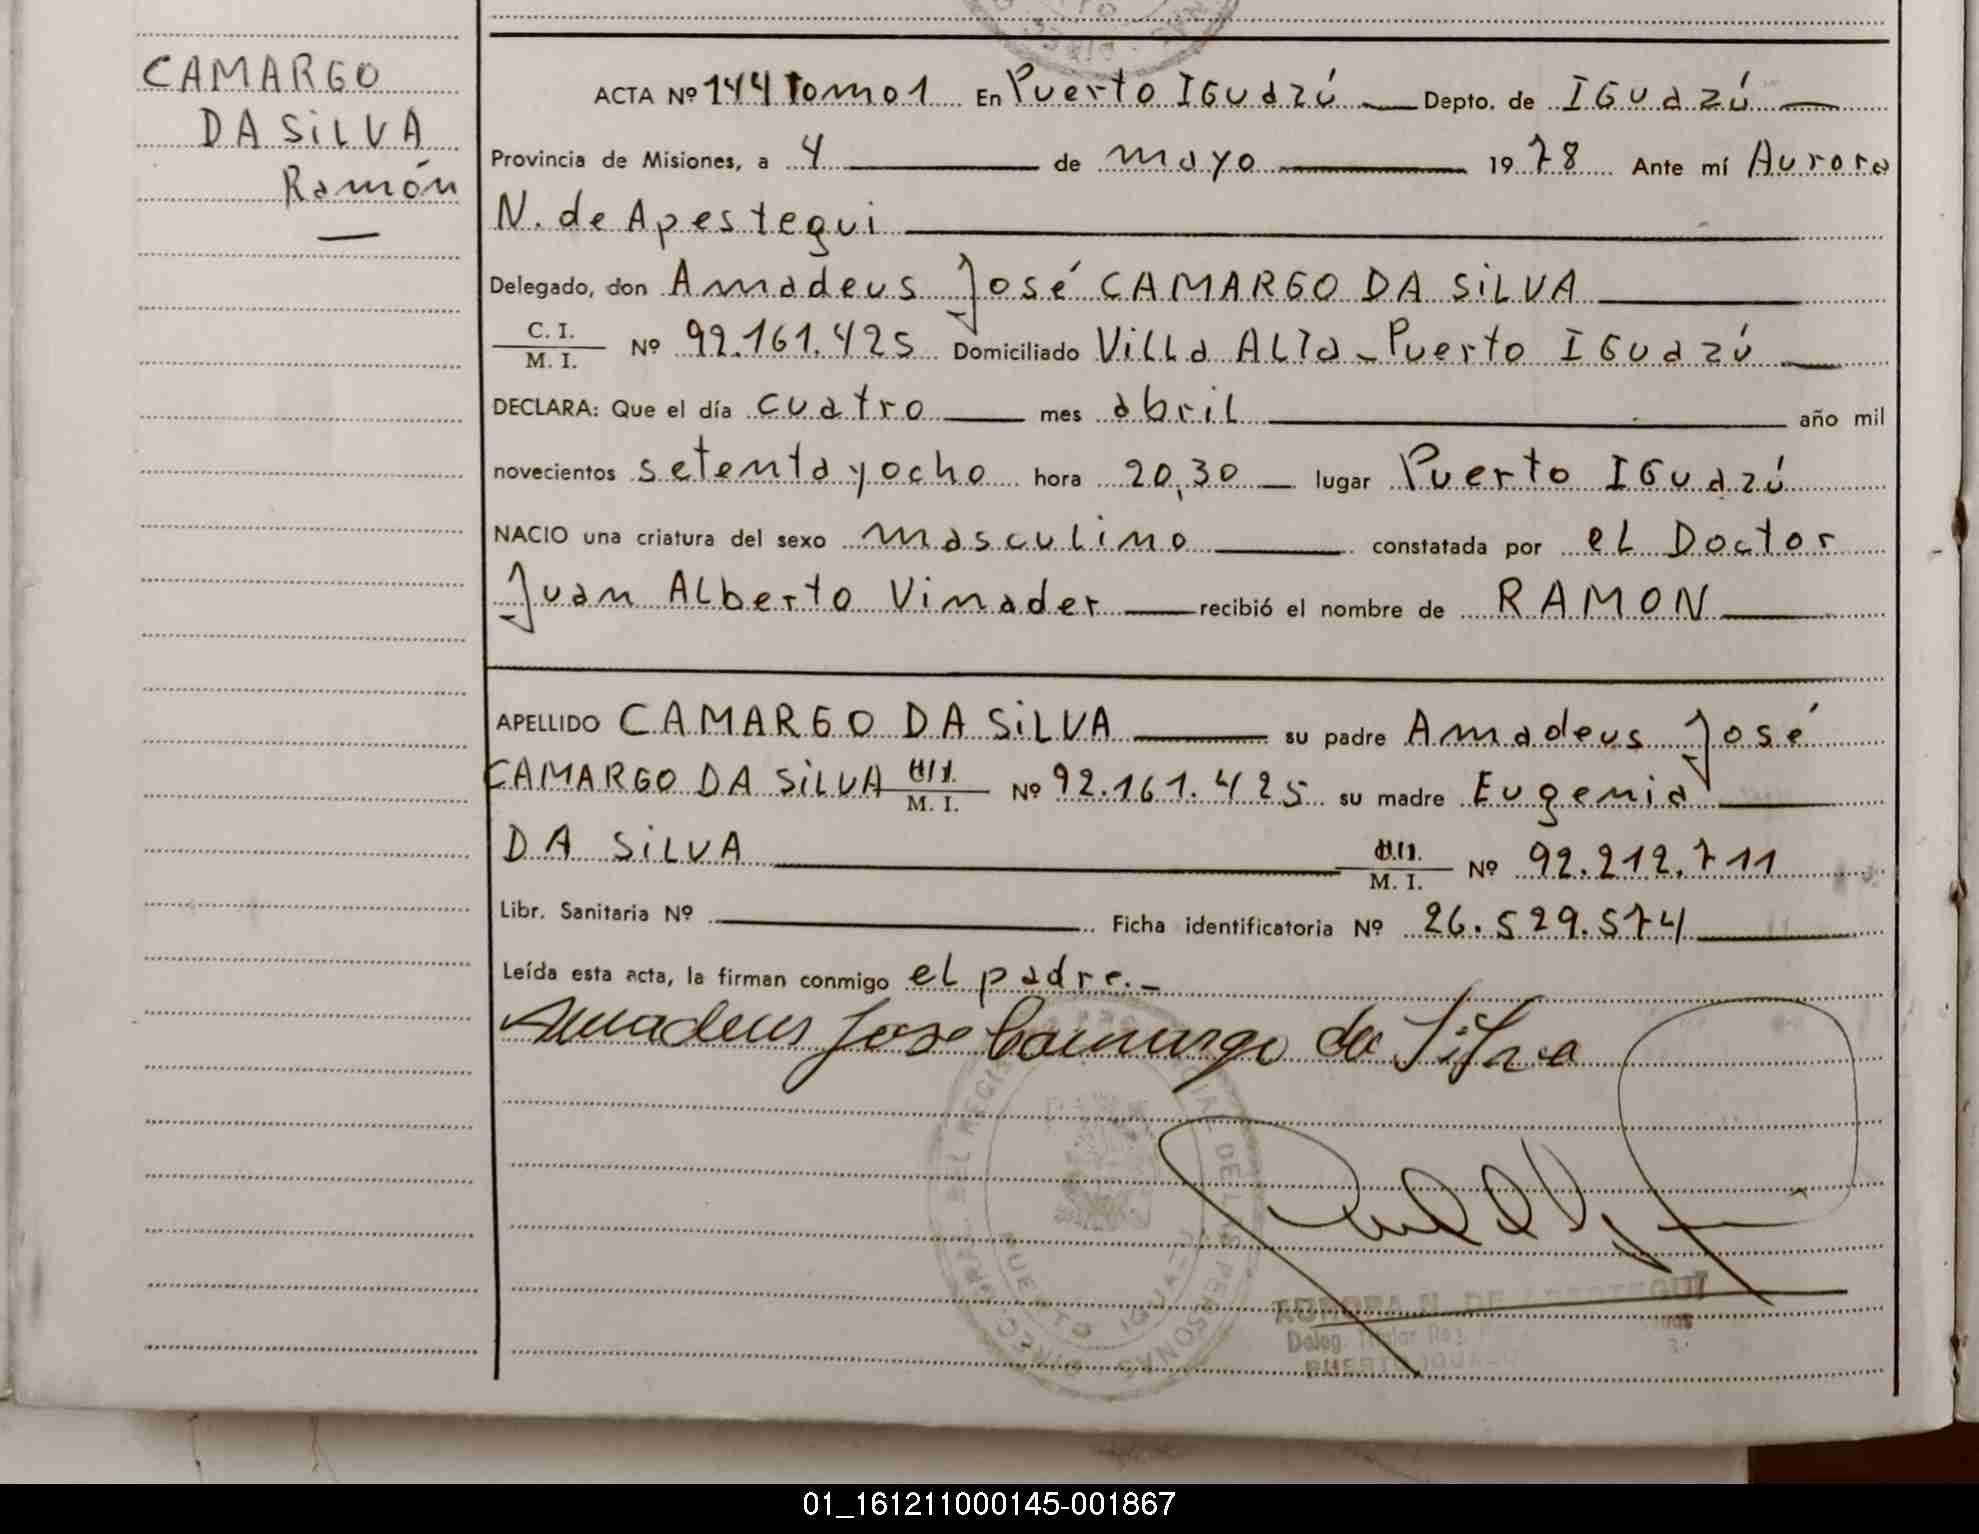 CAMARGO
DA SiLVA
Ramón
ACTA Nº 144 Tomo 1 En Puerto IGuazú Depto. de IGuazú
Provincia de Misiones, a 4 de mayo 1978 Ante mí Aurora
N. de Apestegui
Delegado, don Amadeus José CAMARGO DA SiLVA
C. I.
M. I. Nº 92.161.425 Domiciliado Villa Alta - Puerto IGuazú
DECLARA: Que el día cuatro mes abril año mil
novecientos setenta y ocho hora 20,30 lugar Puerto IGuazú
NACIO una criatura del sexo masculino constatada por el Doctor
Juan Alberto Vinader recibió el nombre de RAMON
APELLIDO CAMARGO DA SiLVA su padre Amadeus José
CAMARGO DA SiLVA M. I. Nº 92.161.425 su madre Eugenia
DA SiLVA M. I. Nº 92.212.711
Libr. Sanitaria Nº Ficha identificatoria Nº 26.529.574
Leída esta acta, la firman conmigo el padre.-
Amadeus Jose Camargo da Silva
PUERTO IGUAZU
AURORA N. DE APESTEGUI
Deleg. Titular Reg.
PUERTO IGUAZU
01_161211000145-001867